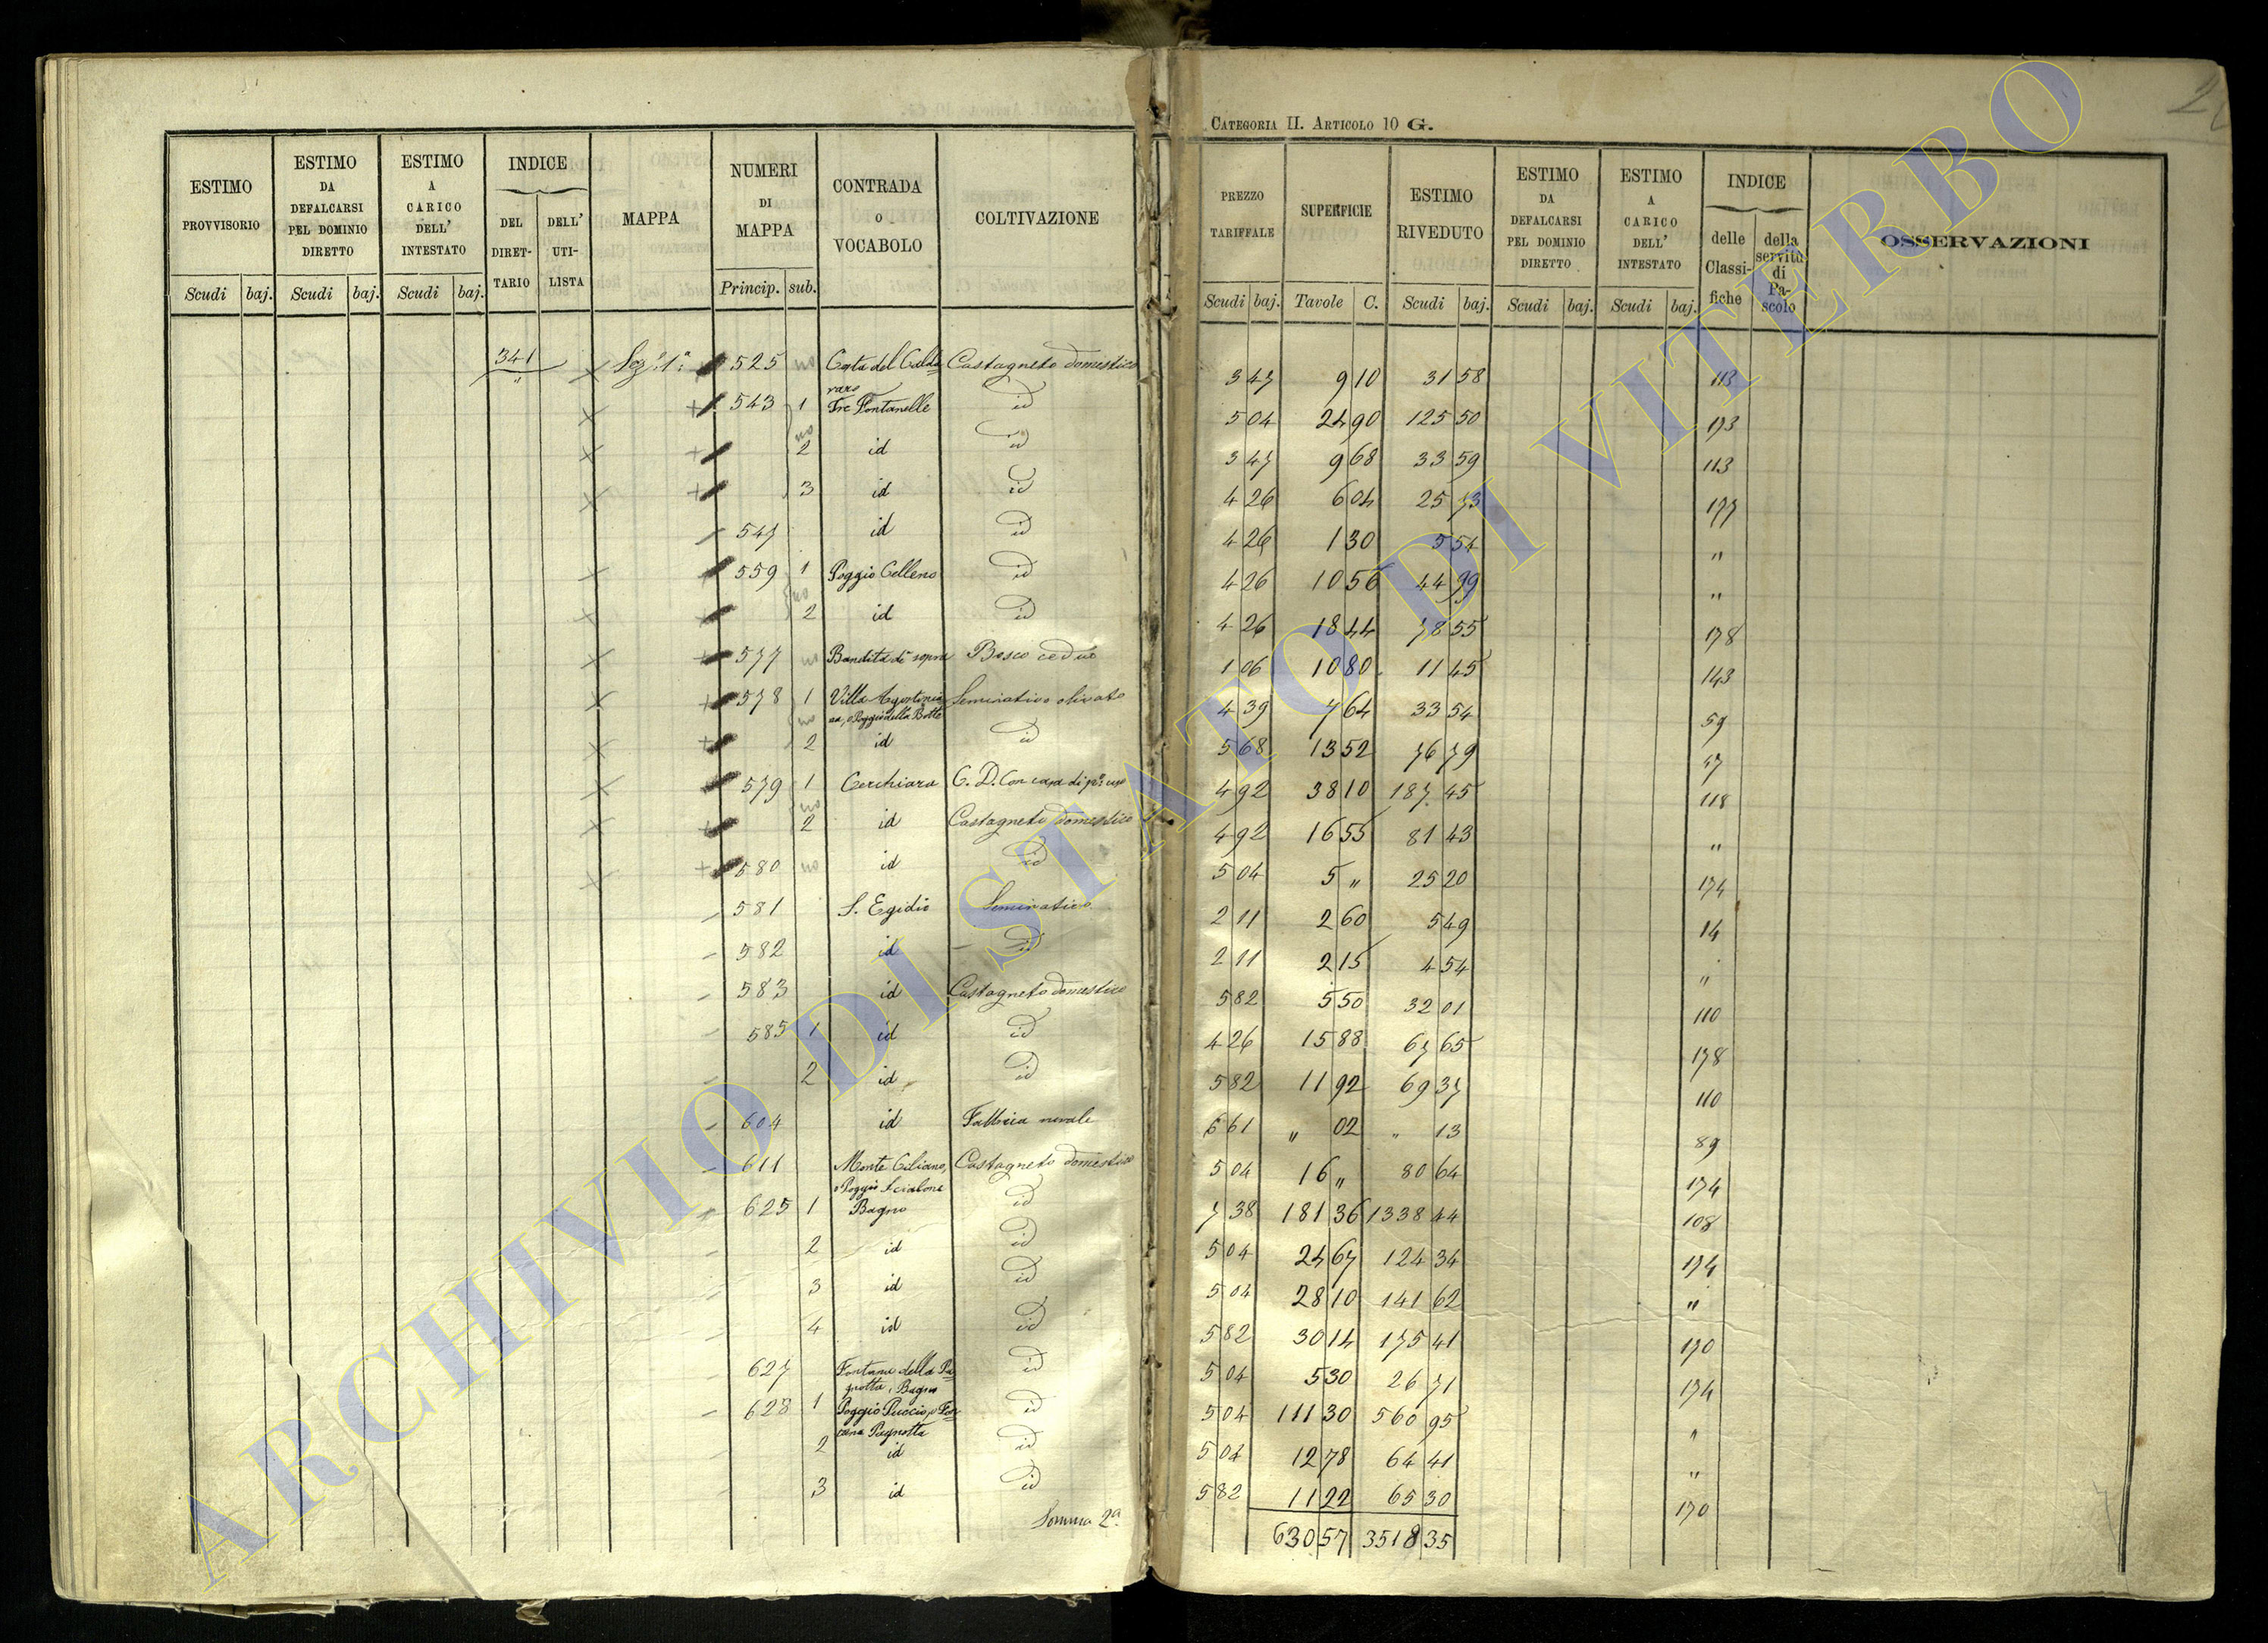 CATEGORIA II. ARTICOLO 10 G.
ESTIMO PROVVISORIO Scudi baj.
ESTIMO DA DEFALCARSI PEL DOMINIO DIRETTO Scudi baj.
ESTIMO A CARICO DELL' INTESTATO Scudi baj.
INDICE DEL DIRET-TARIO DELL' UTI-LISTA
MAPPA
NUMERI DI MAPPA Princip. sub.
CONTRADA O VOCABOLO
COLTIVAZIONE
PREZZO TARIFFALE Scudi baj.
SUPERFICIE Tavole C.
ESTIMO RIVEDUTO Scudi baj.
ESTIMO DA DEFALCARSI PEL DOMINIO DIRETTO Scudi baj.
ESTIMO A CARICO DELL' INTESTATO Scudi baj.
INDICE delle Classi-fiche della servitù di Pa-scolo
OSSERVAZIONI
341 Sez.e 1a 525 no Castagneto domestico 3 47 9 10 31 58 113
543 1 Tre Fontanelle id 5 04 24 90 125 50 173
no 2 id id 3 47 9 68 33 59 113
3 id id 4 26 6 04 25 73 177
547 id id 4 26 1 30 5 54 "
559 1 Poggio Celleno id 4 26 10 56 44 99 "
no 2 id id 4 26 18 44 78 55 178
577 no Bandita di sopra Bosco ceduo 1 06 10 80 11 45 143
578 1 Villa Agostinia=na, o Poggio della Botte Seminativo olivato 4 39 7 64 33 54 59
no 2 id id 5 68 13 52 76 79 47
579 1 Cerchiara C. D. con casa di pro: uso 4 92 38 10 187 45 118
no 2 id Castagneto domestico 4 92 16 55 81 43 "
580 no id id 5 04 5 " 25 20 174
581 S. Egidio Seminativo 2 11 2 60 5 49 14
582 id id 2 11 2 15 4 54 "
583 id Castagneto domestico 5 82 5 50 32 01 110
585 1 id id 4 26 15 88 67 65 178
2 id id 5 82 11 92 69 37 110
604 id Fabbrica rurale 6 61 " 02 " 13 89
611 Monte Ciliano, o Poggio Castagneto domestico 5 04 16 " 80 64 174
625 1 Bagno id 7 38 181 36 1338 44 108
2 id id 5 04 24 67 124 34 174
3 id id 5 04 28 10 141 62 "
4 id id 5 82 30 14 175 41 170
627 Fontana della Pa=gnotta, Bagno id 5 04 5 30 26 71 174
628 1 Poggio Puccio, o Fon=tana Pagnotta id 5 04 111 30 560 95 "
2 id id 5 04 12 78 64 41 "
3 id id 5 82 11 22 65 30 170
Somma 2a 630 57 3518 35
ARCHIVIO DI STATO DI VITERBO